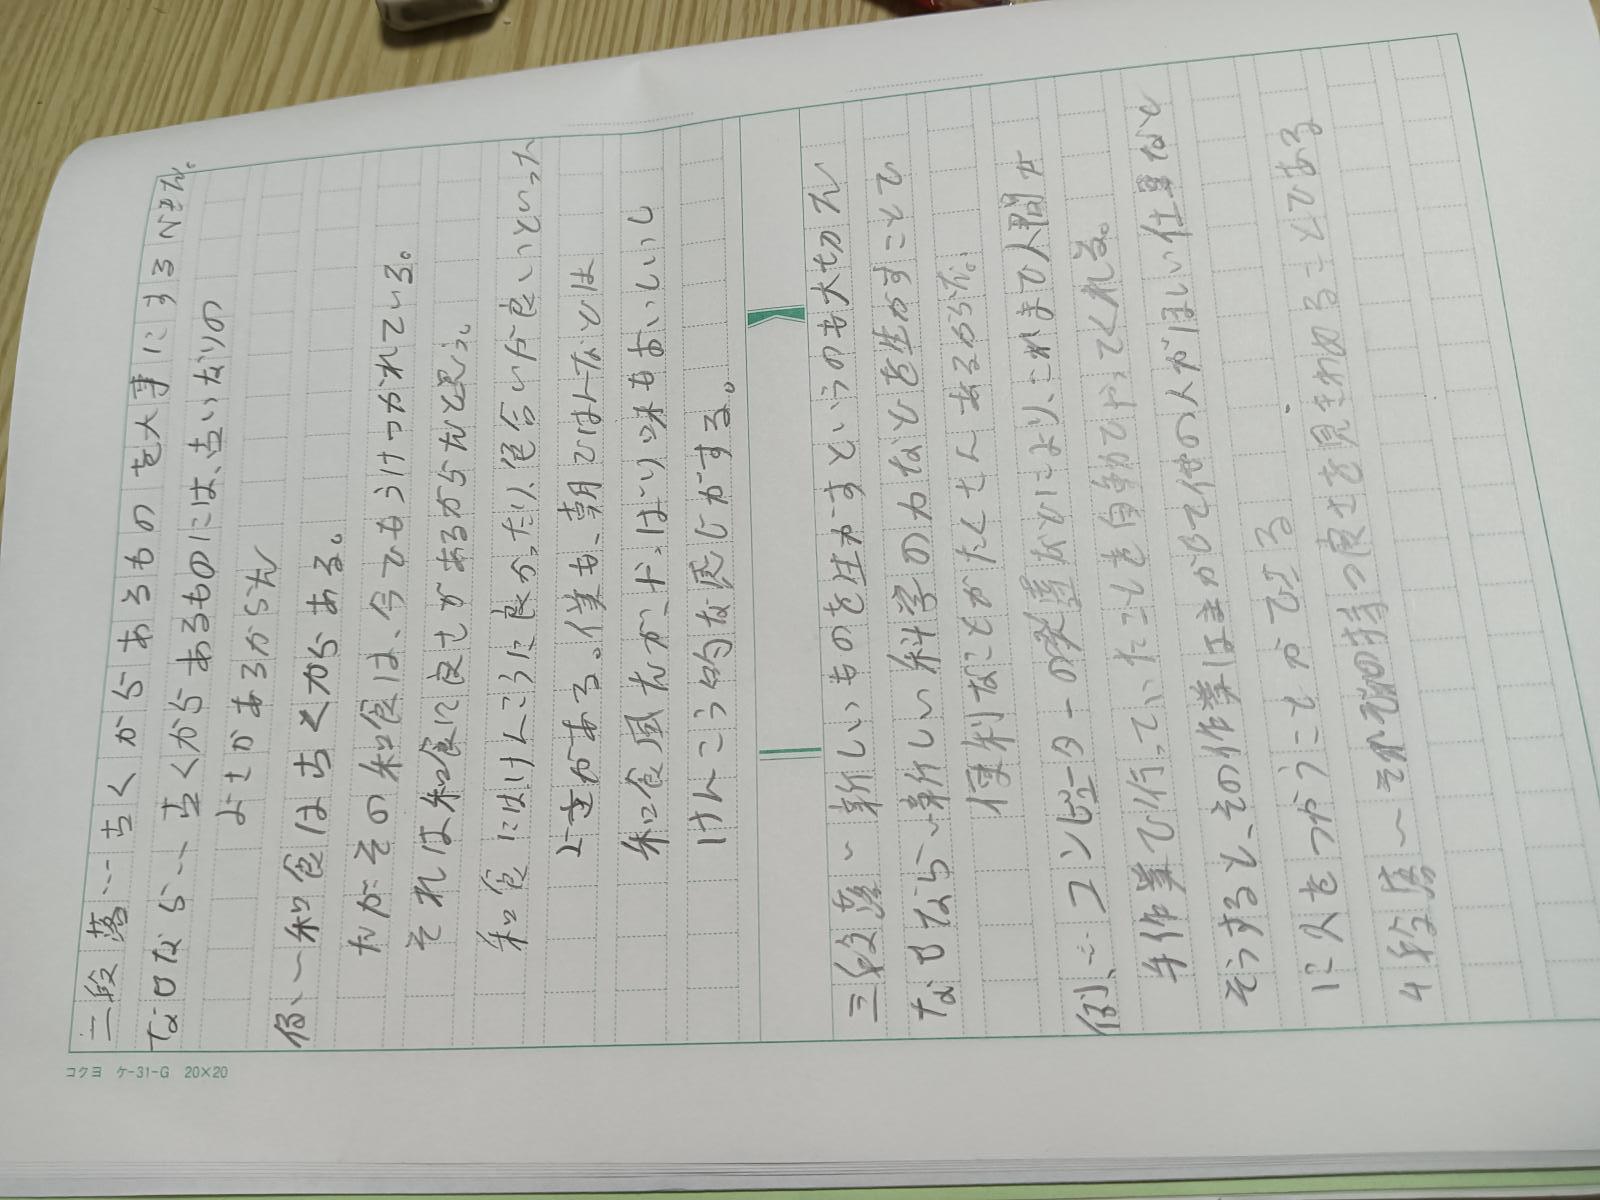 二段落…古くからあるものを大事にするべきだ。
なぜなら…古くからあるものには、古いなりの
よさがあるからだ
例、〜和食は古くからある。
だがその和食は、今でもうけつがれている。
それは和食に良さがあるからだと思う。
和食にはけんこうに良かったり、色合いが良いといった
よさがある。僕も、朝ごはんなどは
和食風だが、やはり味もおいしいし
けんこう的な感じがする。
三段落〜新しいものを生かすというのも大切だ
なぜなら〜新しい科学の力などを生かすことで
便利なことがたくさんあるからだ。
例、…コンピューターの発達などにより、これまで人間が
手作業で行っていたことを自動でやってくれる。
そうすると、その作業はまかせて他の人がほしい仕事など
に人をつかうことができる
4段落〜それぞれの持つ良さを見きわめることである
コクヨ ケ-31-G 20×20